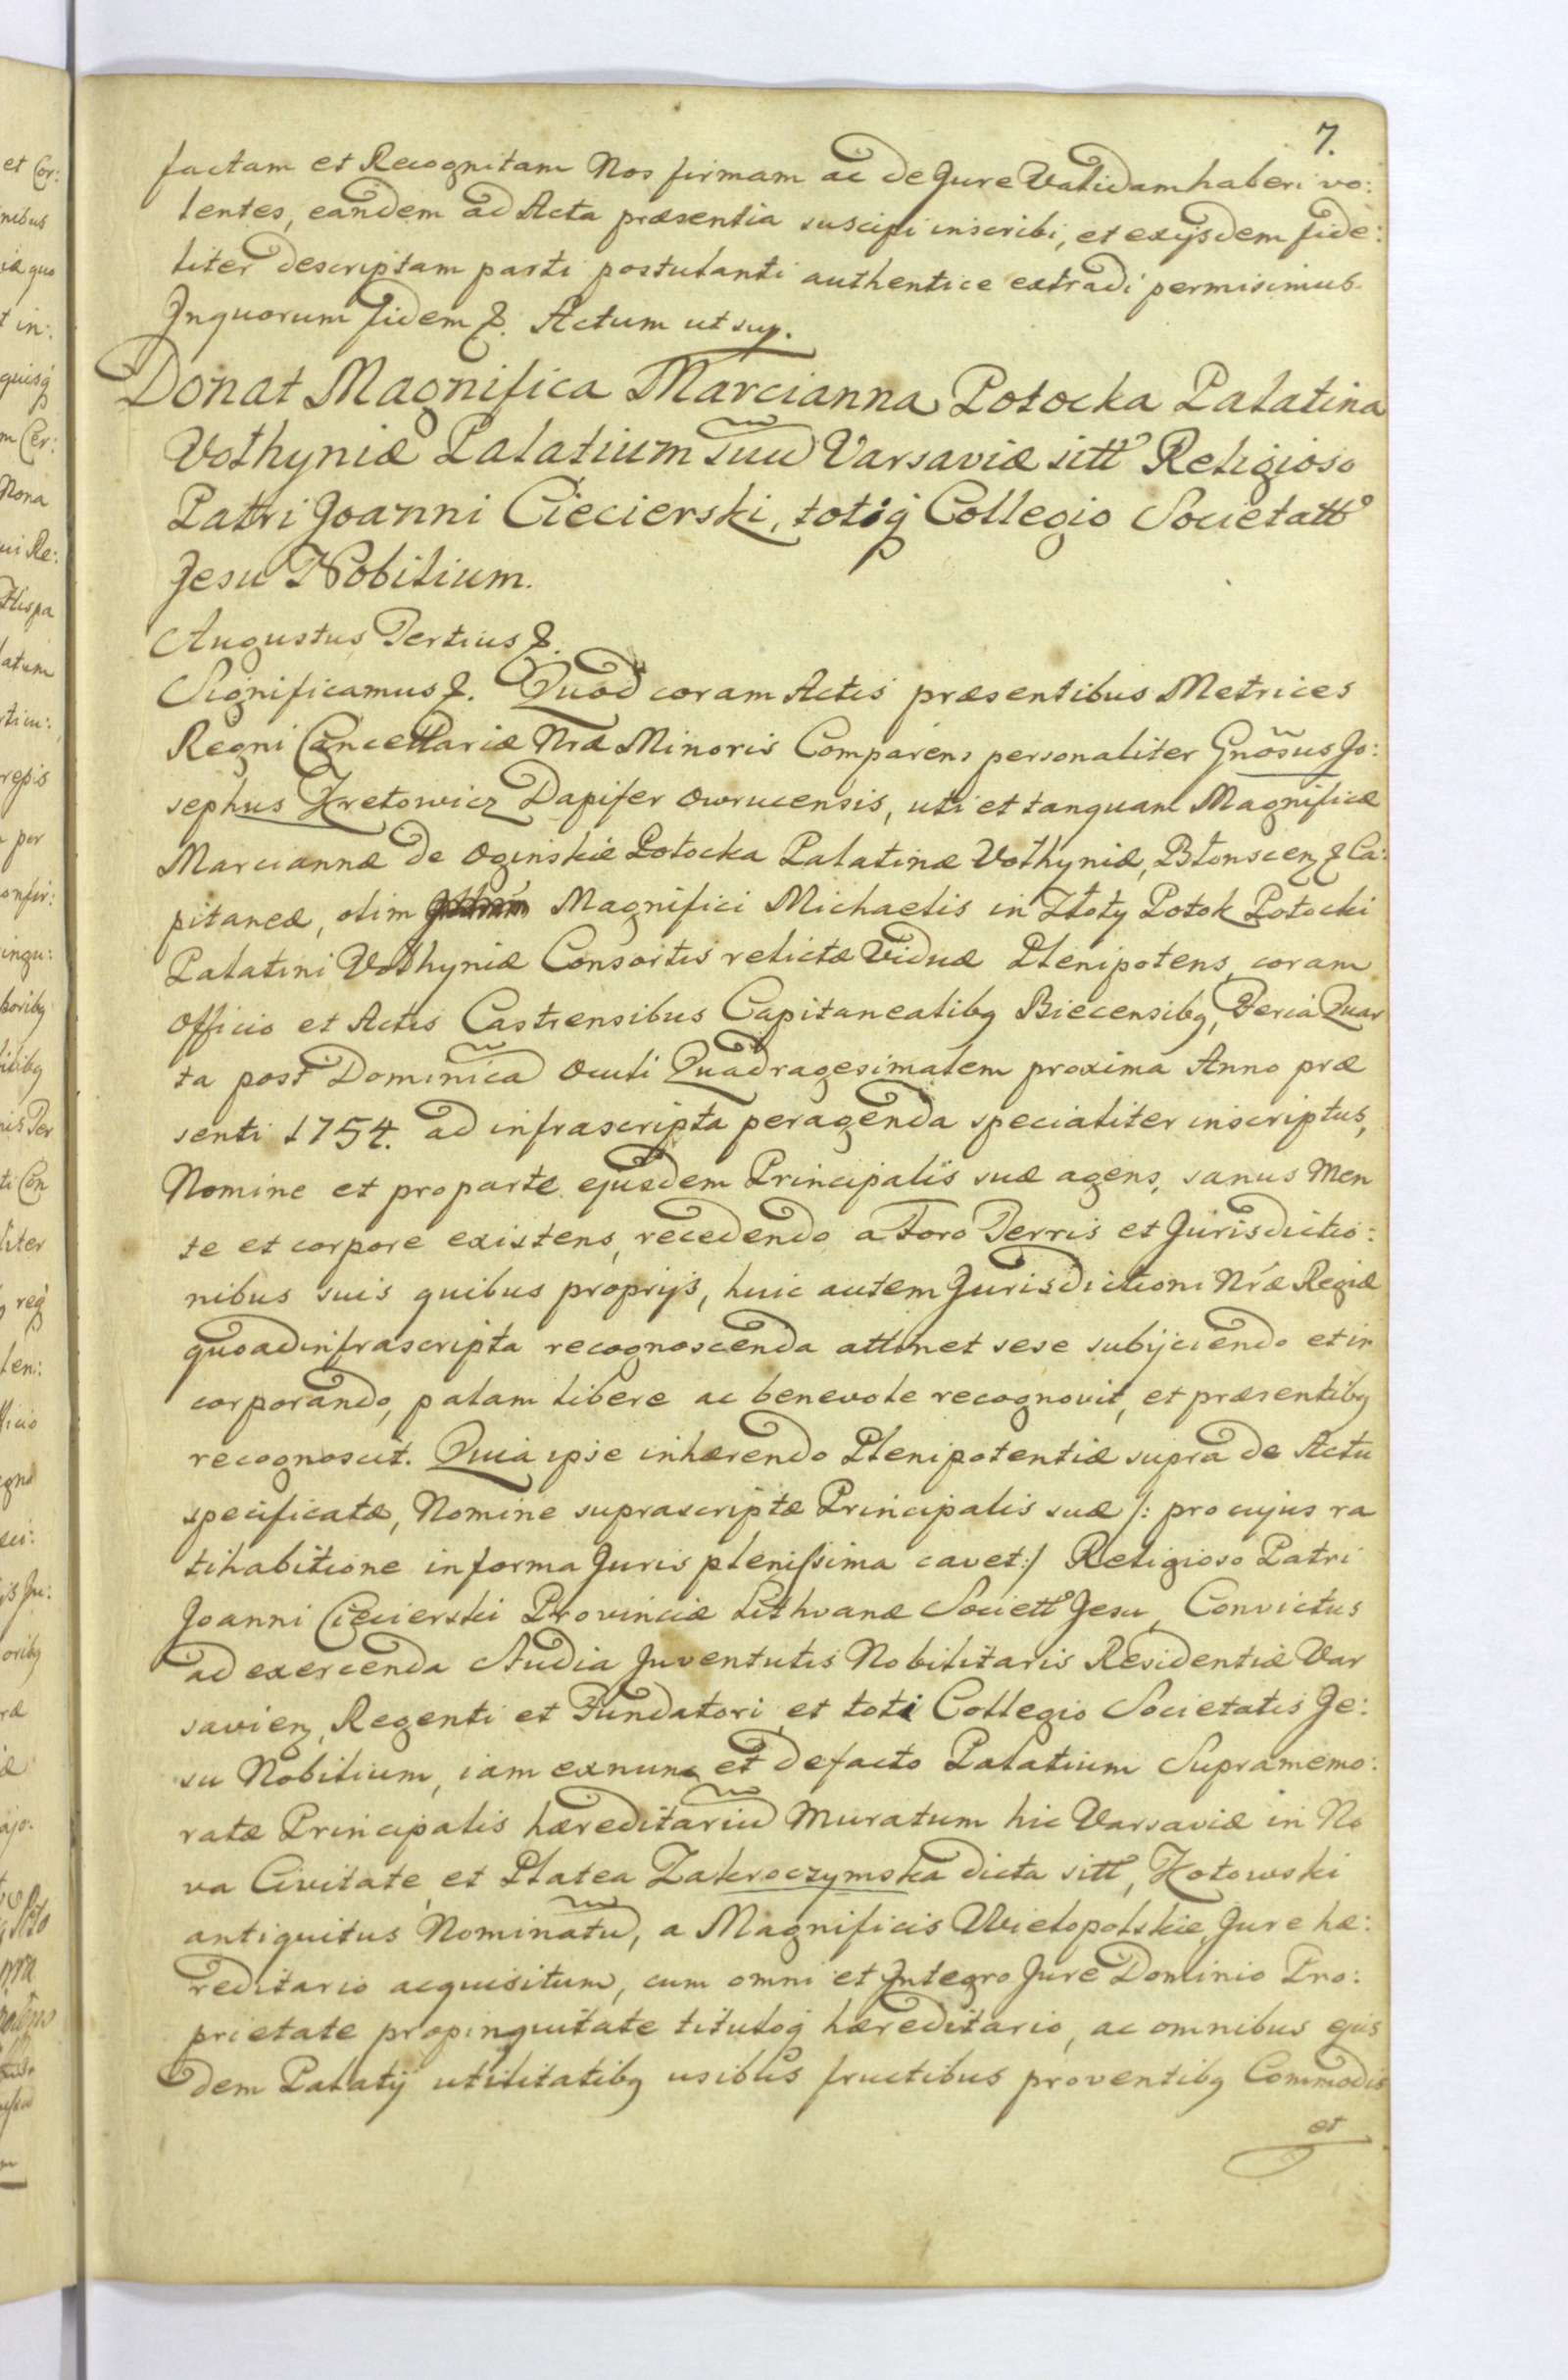 7.
factam et Recognitam Nos firmam ac de Jure Validam haberi vo:
lentes, eandem ad Acta præsentia suscipi inscribi, et exijsdem fide:
liter descriptam parti postulanti authentice extradi permisimus.
Inquorum fidem &. Actum ut sup.
Donat Magnifica Marcianna Potocka Palatina
Volhyniæ Palatium suũ Varsaviæ sitt Religioso
Patri Joanni Ciecierski, totiq Collegio Societatt
Jesu Nobilium.
Augustus Tertius &.
Significamus &. Quod coram Actis præsentibus Metrices
Regni Cancellariæ Nræ Minoris Comparens personaliter Gnõsus Jo:
sephus Zretowicz Dapifer Owrucensis, uti et tanquam Magnificæ
Marciannæ de Oginskie Potocka Palatinæ Volhyniæ, Błonscen & Ca:
pitaneæ, olim Magnifici Michaelis in Złoty Potok Potocki
Palatini Volhyniæ Consortis relictæ Viduæ Plenipotens, coram
Officio et Actis Castrensibus Capitanealibq Biecensibq, Feria Quar
ta post Dominicã Oculi Quadragesimalem proxima Anno præ
senti 1754. ad infrascripta peragenda specialiter inscriptus,
Nomine et pro parte ejusdem Principalis suæ agens, sanus Men
te et corpore existens, recedendo a Foro Terris et Jurisdictio:
nibus suis quibus proprijs, huic autem Jurisdictioni Nræ Regiæ
quoad infrascripta recognoscenda attinet sese subijciendo et in
corporando, palam libere ac benevole recognovit, et præsentibq
recognoscit. Quia ipse inhærendo Plenipotentiæ supra de Actu
specificatæ, Nomine suprascriptæ Principalis suæ /: pro cujus ra
tihabitione in forma Juris plenissima cavet :/ Religioso Patri
Joanni Ciecierski Provinciæ Lithvanæ Societt Jesu, Convictus
ad exercenda Studia Juventutis Nobilitaris Residentiæ Var
savien, Regenti et Fundatori et toti Collegio Societatis Je:
su Nobilium, iam exnunc et defacto Palatium Supramemo:
ratæ Principalis hæreditariũ Muratum hic Varsaviæ in No
va Civitate et Platea Zakroczymska dicta sitt, Kotowski
antiquitus Nominatũ, a Magnificis Wielopolskie, Jure hæ:
reditario acquisitum, cum omni et Integro Jure Dominio Pro:
prietate propinquitate tituloq hæreditario, ac omnibus ejus
dem Palatij utilitatibq usibus fructibus proventibq Commodis
et